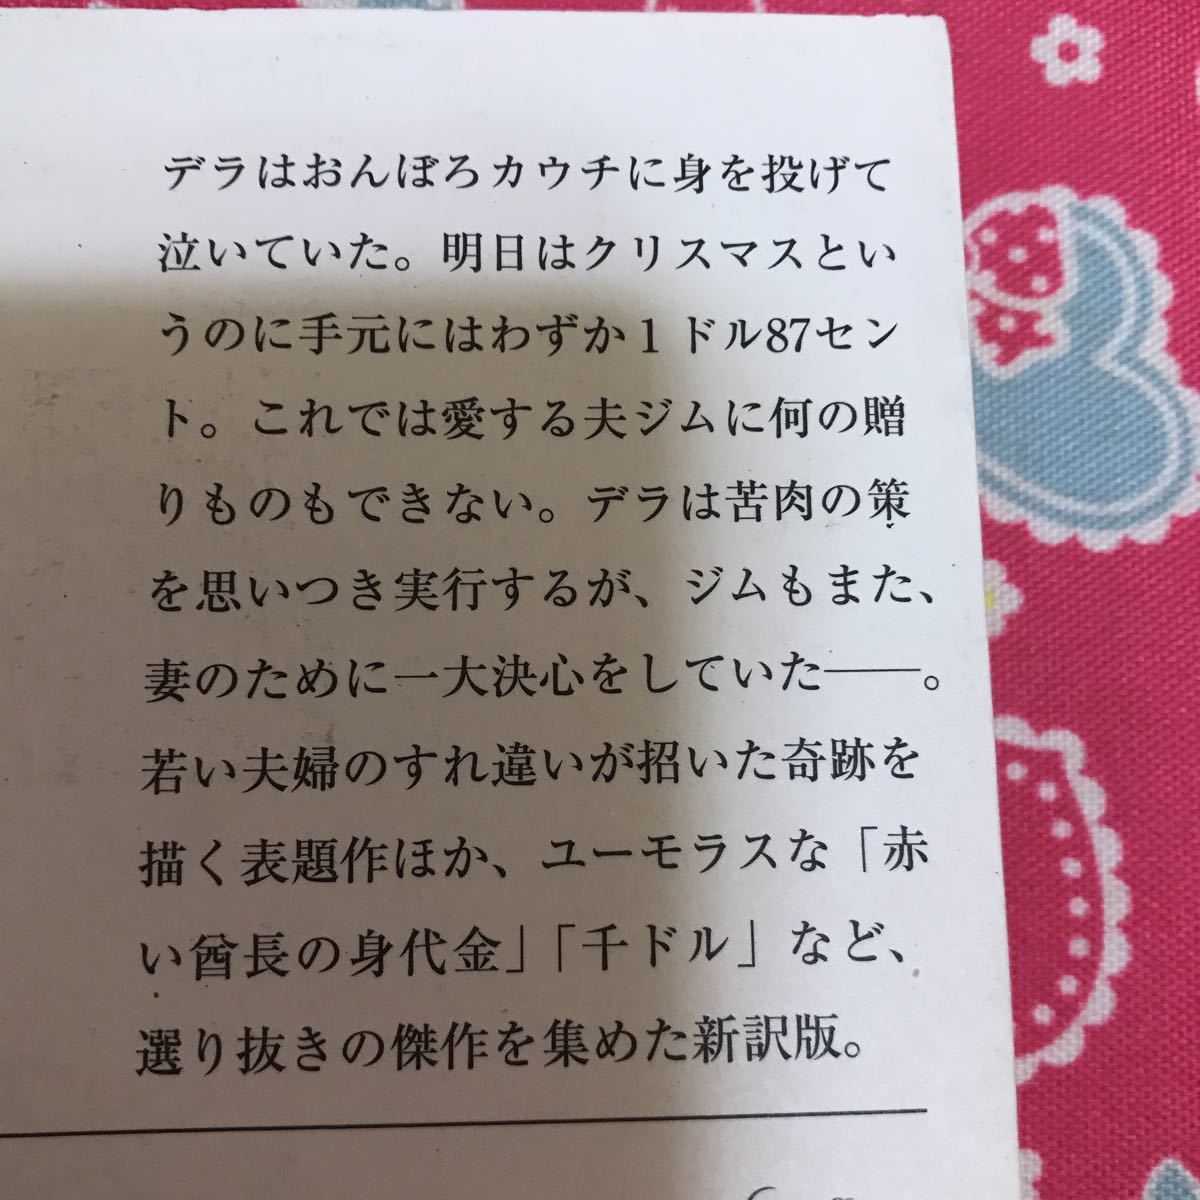 デラはおんぼろカウチに身を投げて
泣いていた。明日はクリスマスとい
うのに手元にはわずか1ドル87セン
ト。これでは愛する夫ジムに何の贈
りものもできない。デラは苦肉の策
を思いつき実行するが、ジムもまた、
妻のために一大決心をしていた――。
若い夫婦のすれ違いが招いた奇跡を
描く表題作ほか、ユーモラスな「赤
い酋長の身代金」「千ドル」など、
選り抜きの傑作を集めた新訳版。